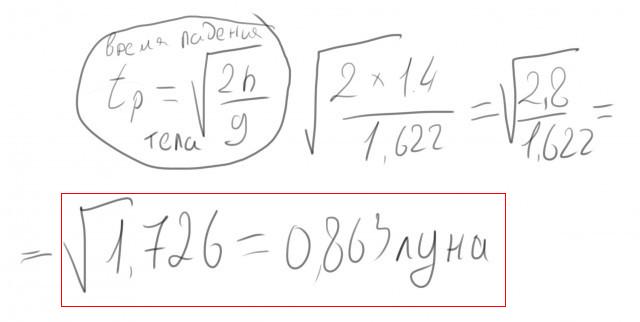 время падения
tр = √(2h/g)
тела
√(2 × 1.4/1,622) = √(2,8/1,622) =
= √1,726 = 0,863 луна